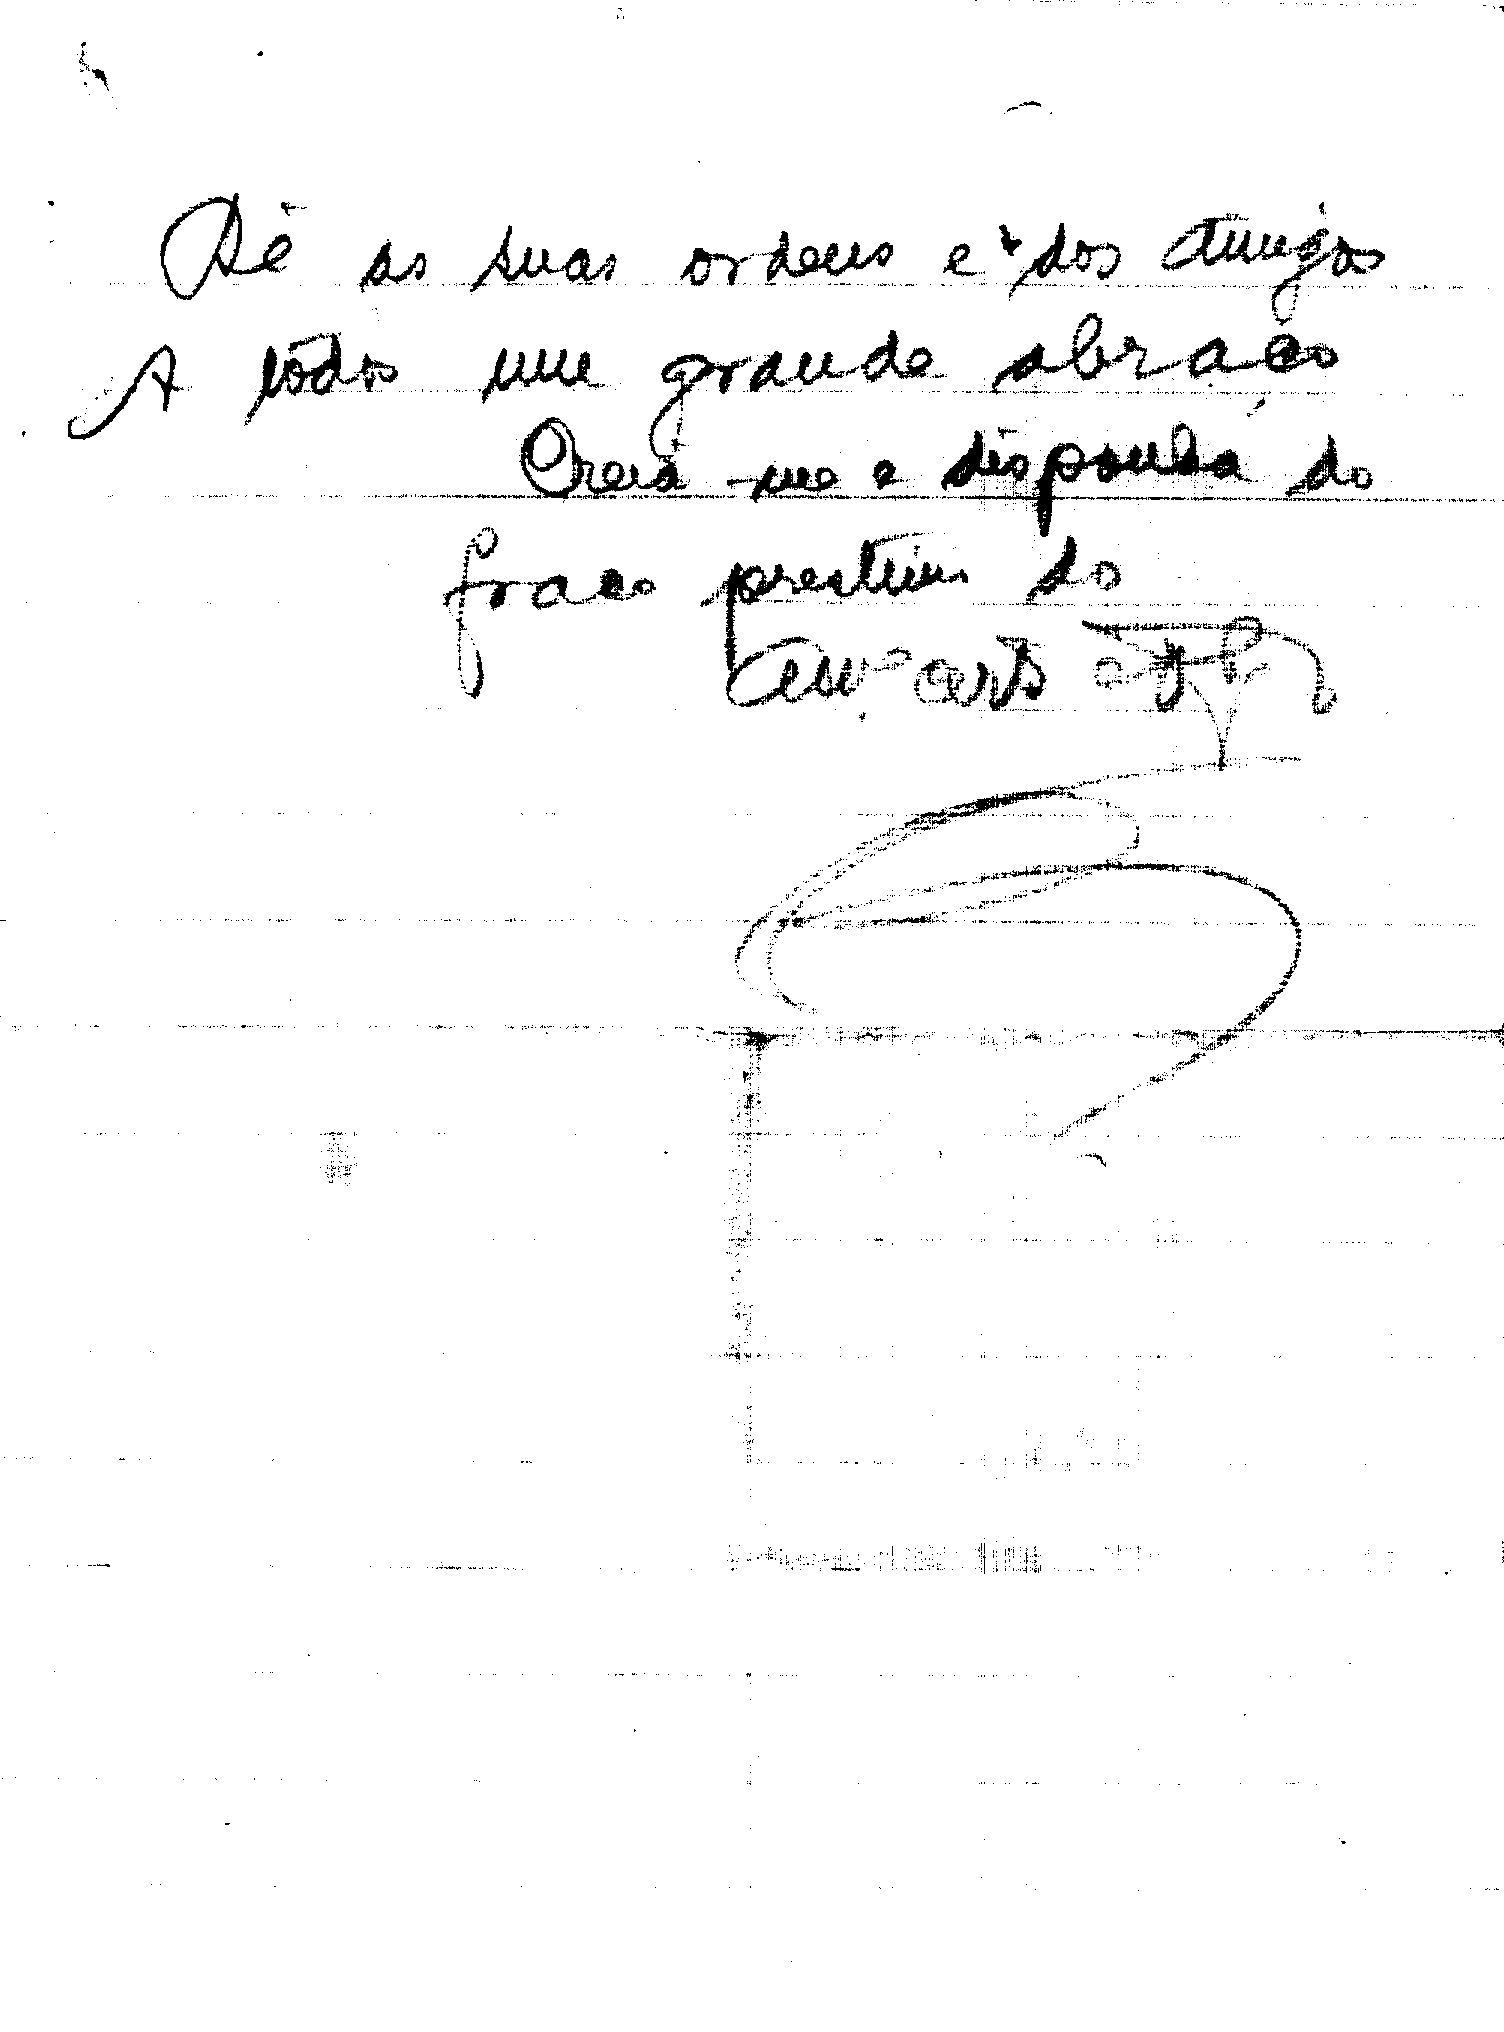 Dê as suas ordens e dos amigos
A todos um grande abraço
Creia-me e disponha do
fraco prestimo do
Amº certo